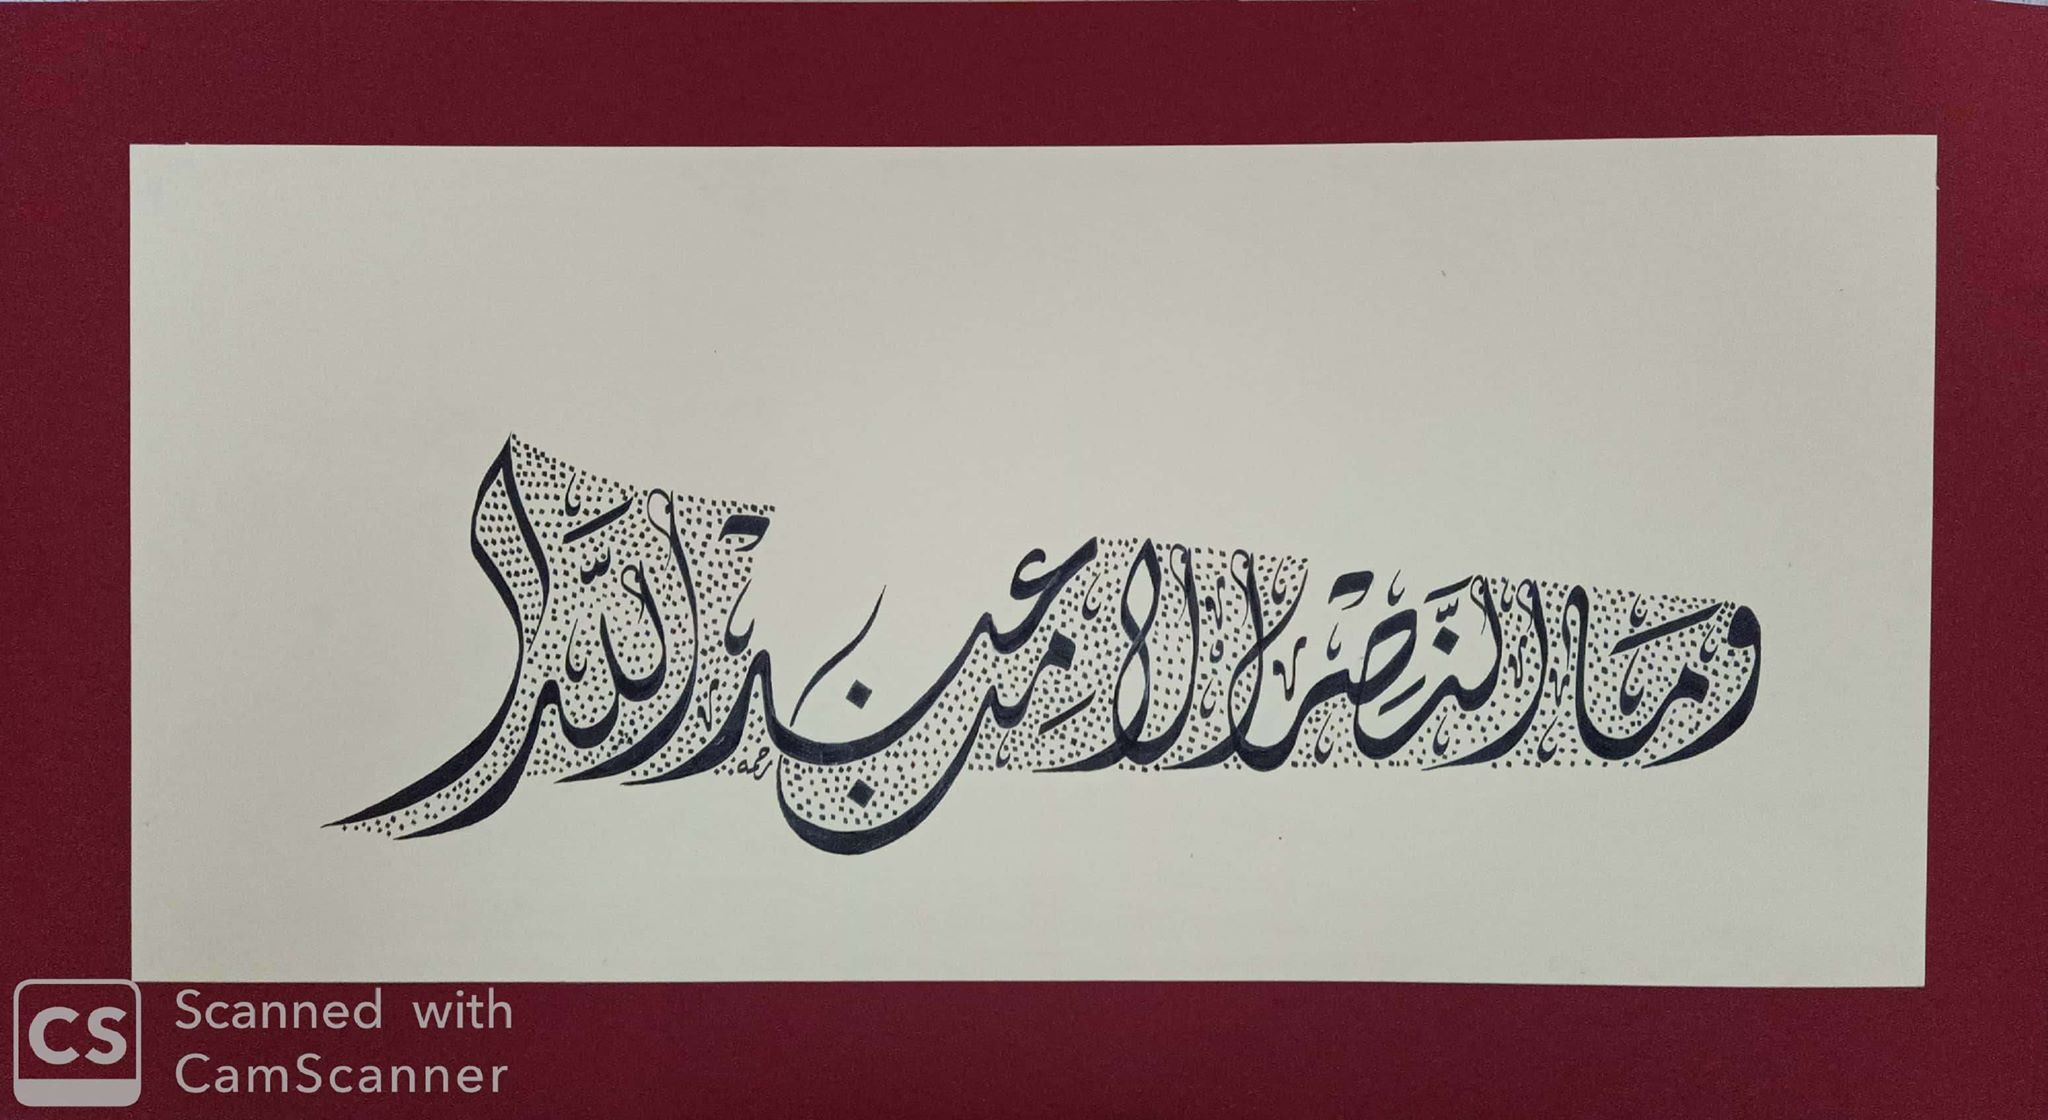 وَمَا النَّصْرُ إِلَّا مِنْ عِنْدِ اللَّهِ
رحمه
CS Scanned with
CamScanner